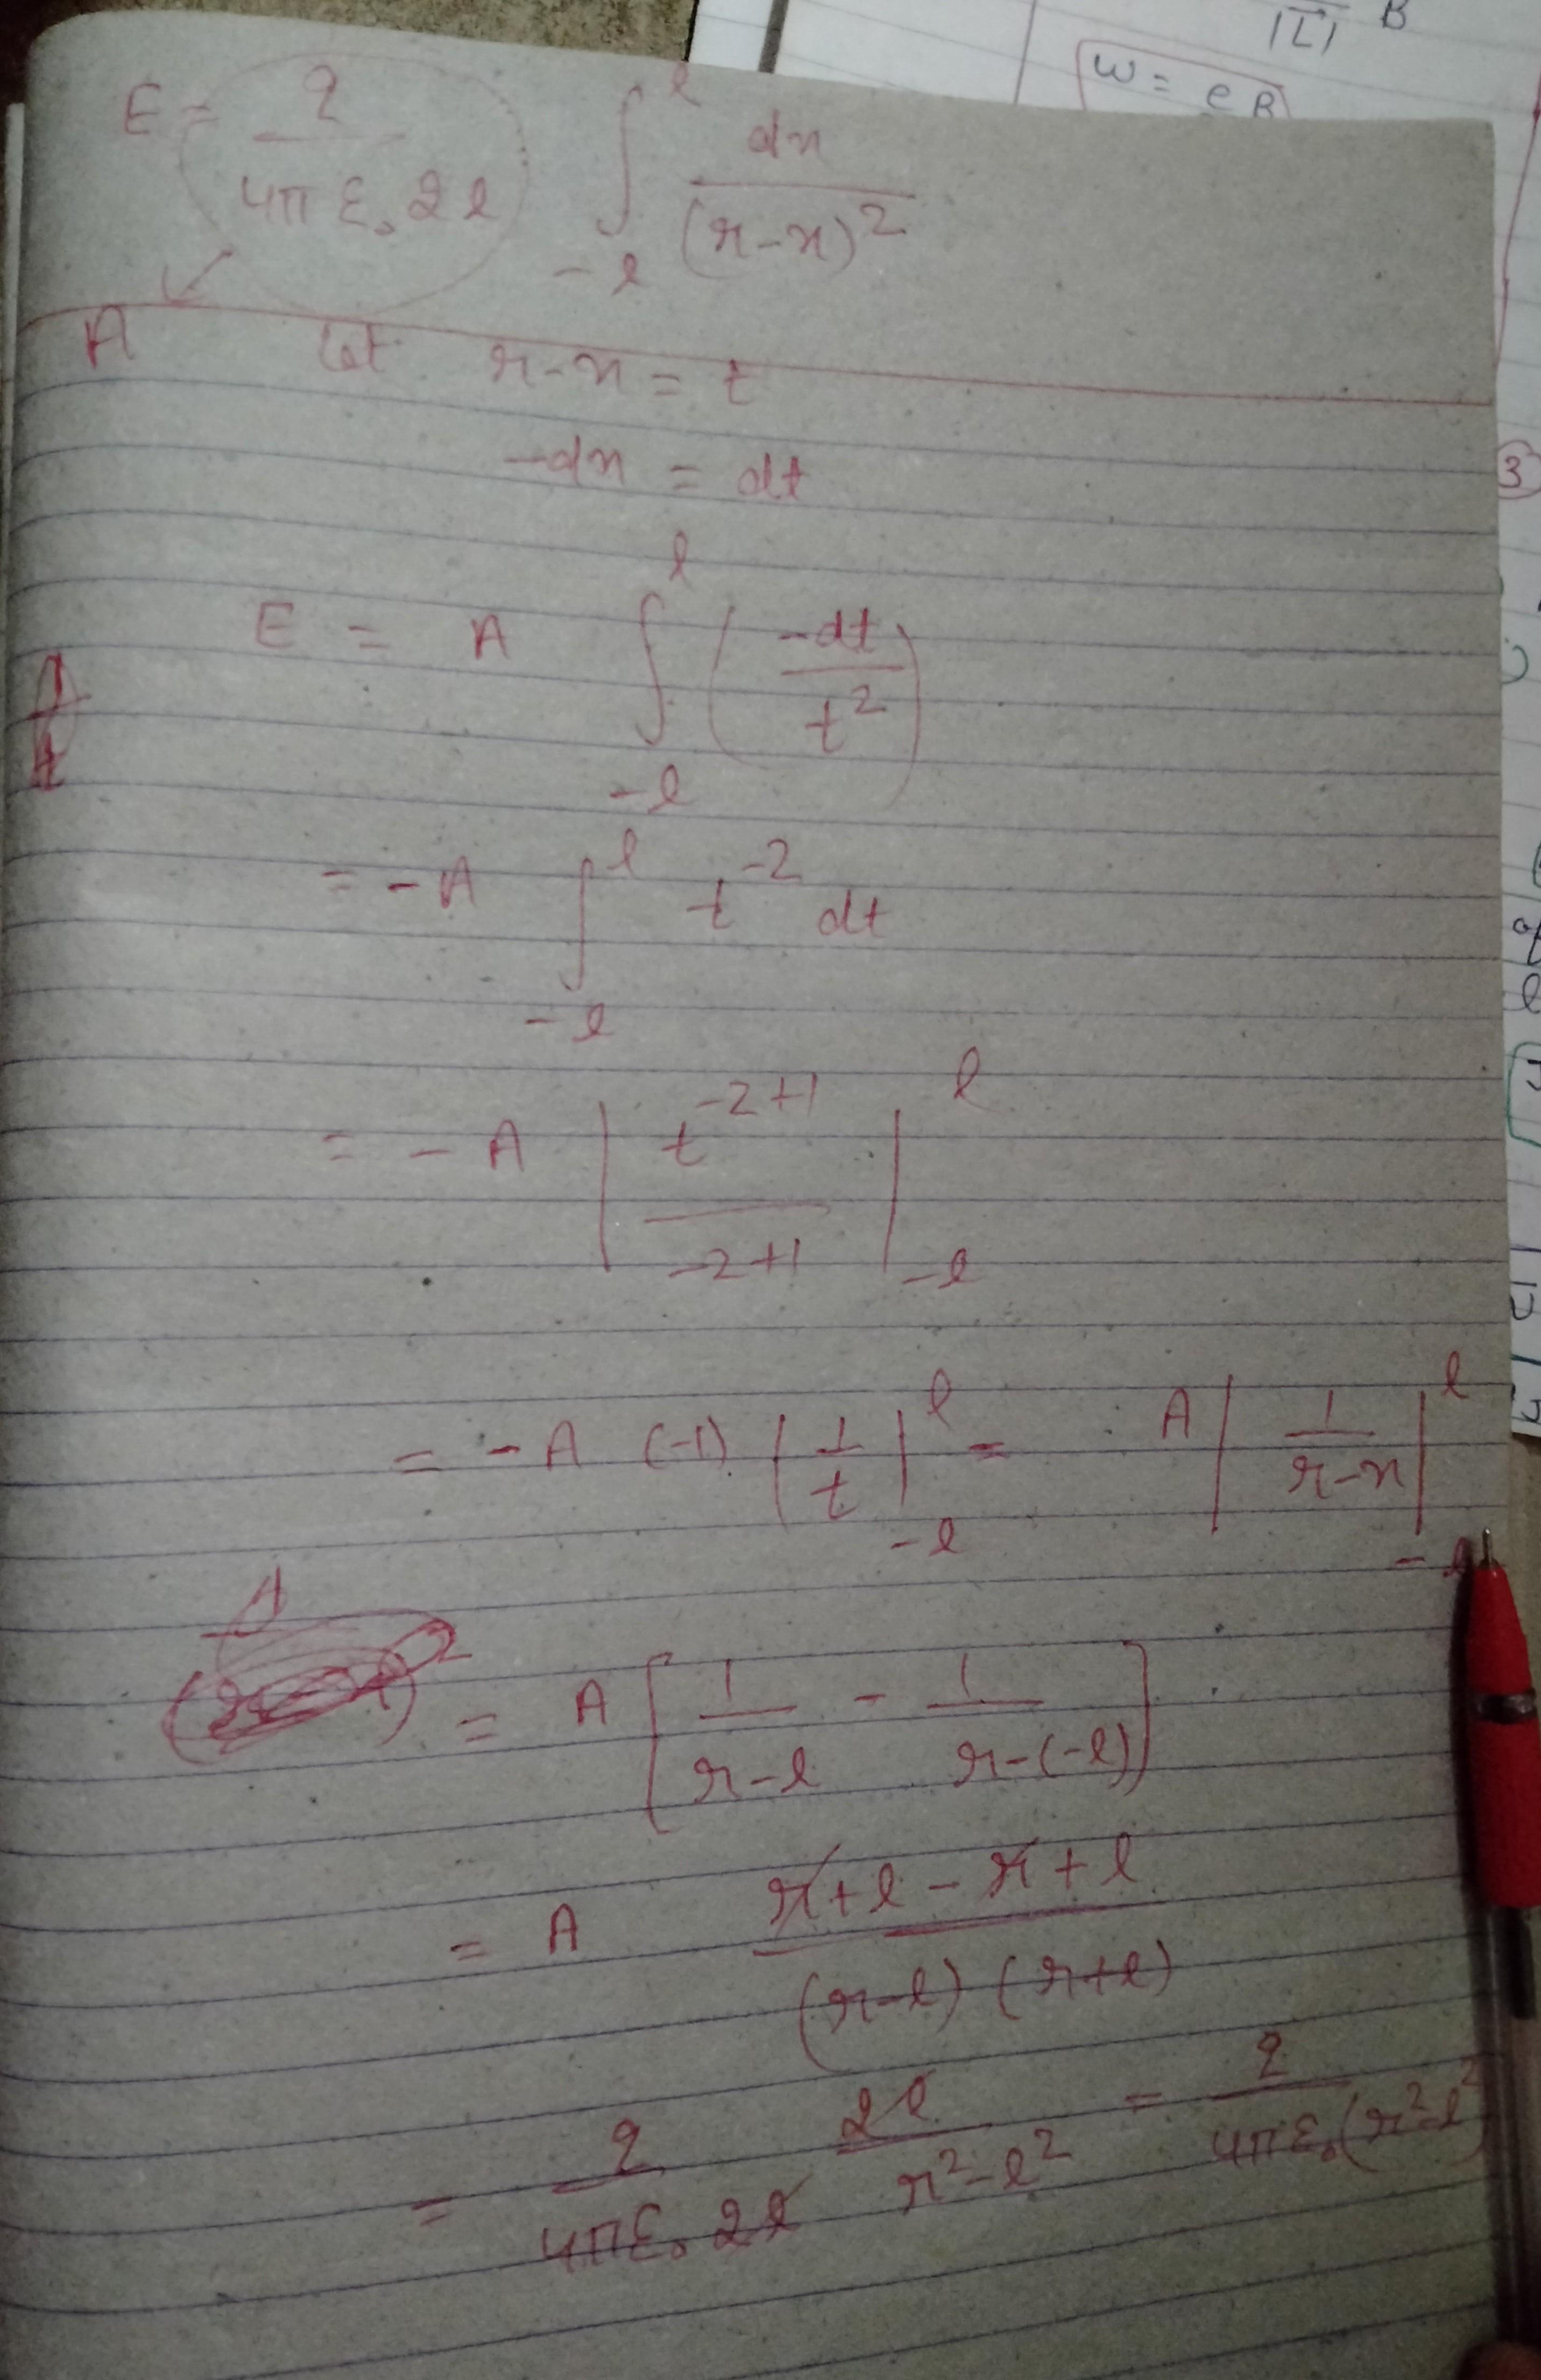 |L| B
ω = eB
E = q / 4πε₀ 2l ∫_{-l}^{l} dx / (r-x)²
A Let r-x = t
-dx = dt
3
E = A ∫_{-l}^{l} (-dt / t²)
= -A ∫_{-l}^{l} t^{-2} dt
= -A | t^{-2+1} / -2+1 |_{-l}^{l}
= -A (-1) | 1/t |_{-l}^{l} = A | 1 / r-x |_{-l}^{l}
= A [ 1 / r-l - 1 / r-(-l) ]
= A r+l-r+l / (r-l) (r+l)
= q / 4πε₀ 2l 2l / r²-l² = q / 4πε₀(r²-l²